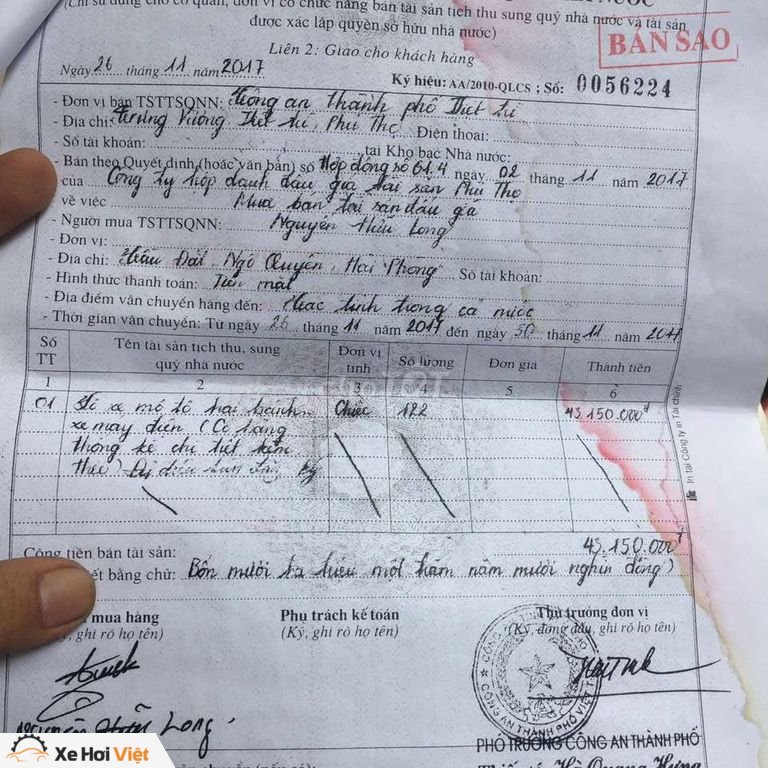 (Chỉ sử dụng cho cơ quan, đơn vị có chức năng bán tài sản tịch thu sung quỹ nhà nước và tài sản
được xác lập quyền sở hữu nhà nước)
BẢN SAO
Liên 2: Giao cho khách hàng
Ngày 26 tháng 11 năm 2017
Ký hiệu: AA/2010-QLCS ; Số: 0056224
- Đơn vị bán TSTTSQNN: Công an thành phố Việt Trì
- Địa chỉ: Trưng Vương Việt Trì, Phú Thọ Điện thoại:
- Số tài khoản: tại Kho bạc Nhà nước:
- Bán theo Quyết định (hoặc văn bản) số Hợp đồng số 61.4 ngày 02 tháng 11 năm 2017
của Công ty hợp danh đấu giá tài sản Phú Thọ
về việc Mua bán tài sản đấu giá
- Người mua TSTTSQNN: Nguyễn Hữu Long
- Đơn vị:
- Địa chỉ: Đất, Ngô Quyền, Hải Phòng Số tài khoản:
- Hình thức thanh toán: Tiền mặt
- Địa điểm vận chuyển hàng đến: trong cả nước
- Thời gian vận chuyển: Từ ngày 26 tháng 11 năm 2017 đến ngày 30 tháng 11 năm 2017
Số TT Tên tài sản tịch thu, sung quỹ nhà nước Đơn vị tính Số lượng Đơn giá Thành tiền
1 2 3 4 5 6
01 xe mô tô hai bánh Chiếc 122 43.150.000đ
xe máy điện (Có bảng
thống kê chi tiết kèm
theo)
In tại Công ty in Tài chính
Cộng tiền bán tài sản: 43.150.000đ
bằng chữ: Bốn mươi ba triệu một trăm năm mươi nghìn đồng)
mua hàng Phụ trách kế toán Thủ trưởng đơn vị
ký, ghi rõ họ tên) (Ký, ghi rõ họ tên) (Ký, đóng dấu, ghi rõ họ tên)
CÔNG AN THÀNH PHỐ VIỆT TRÌ
Nguyễn Hữu Long
PHÓ TRƯỞNG CÔNG AN THÀNH PHỐ
Hà Quang Hưng
Xe Hơi Việt